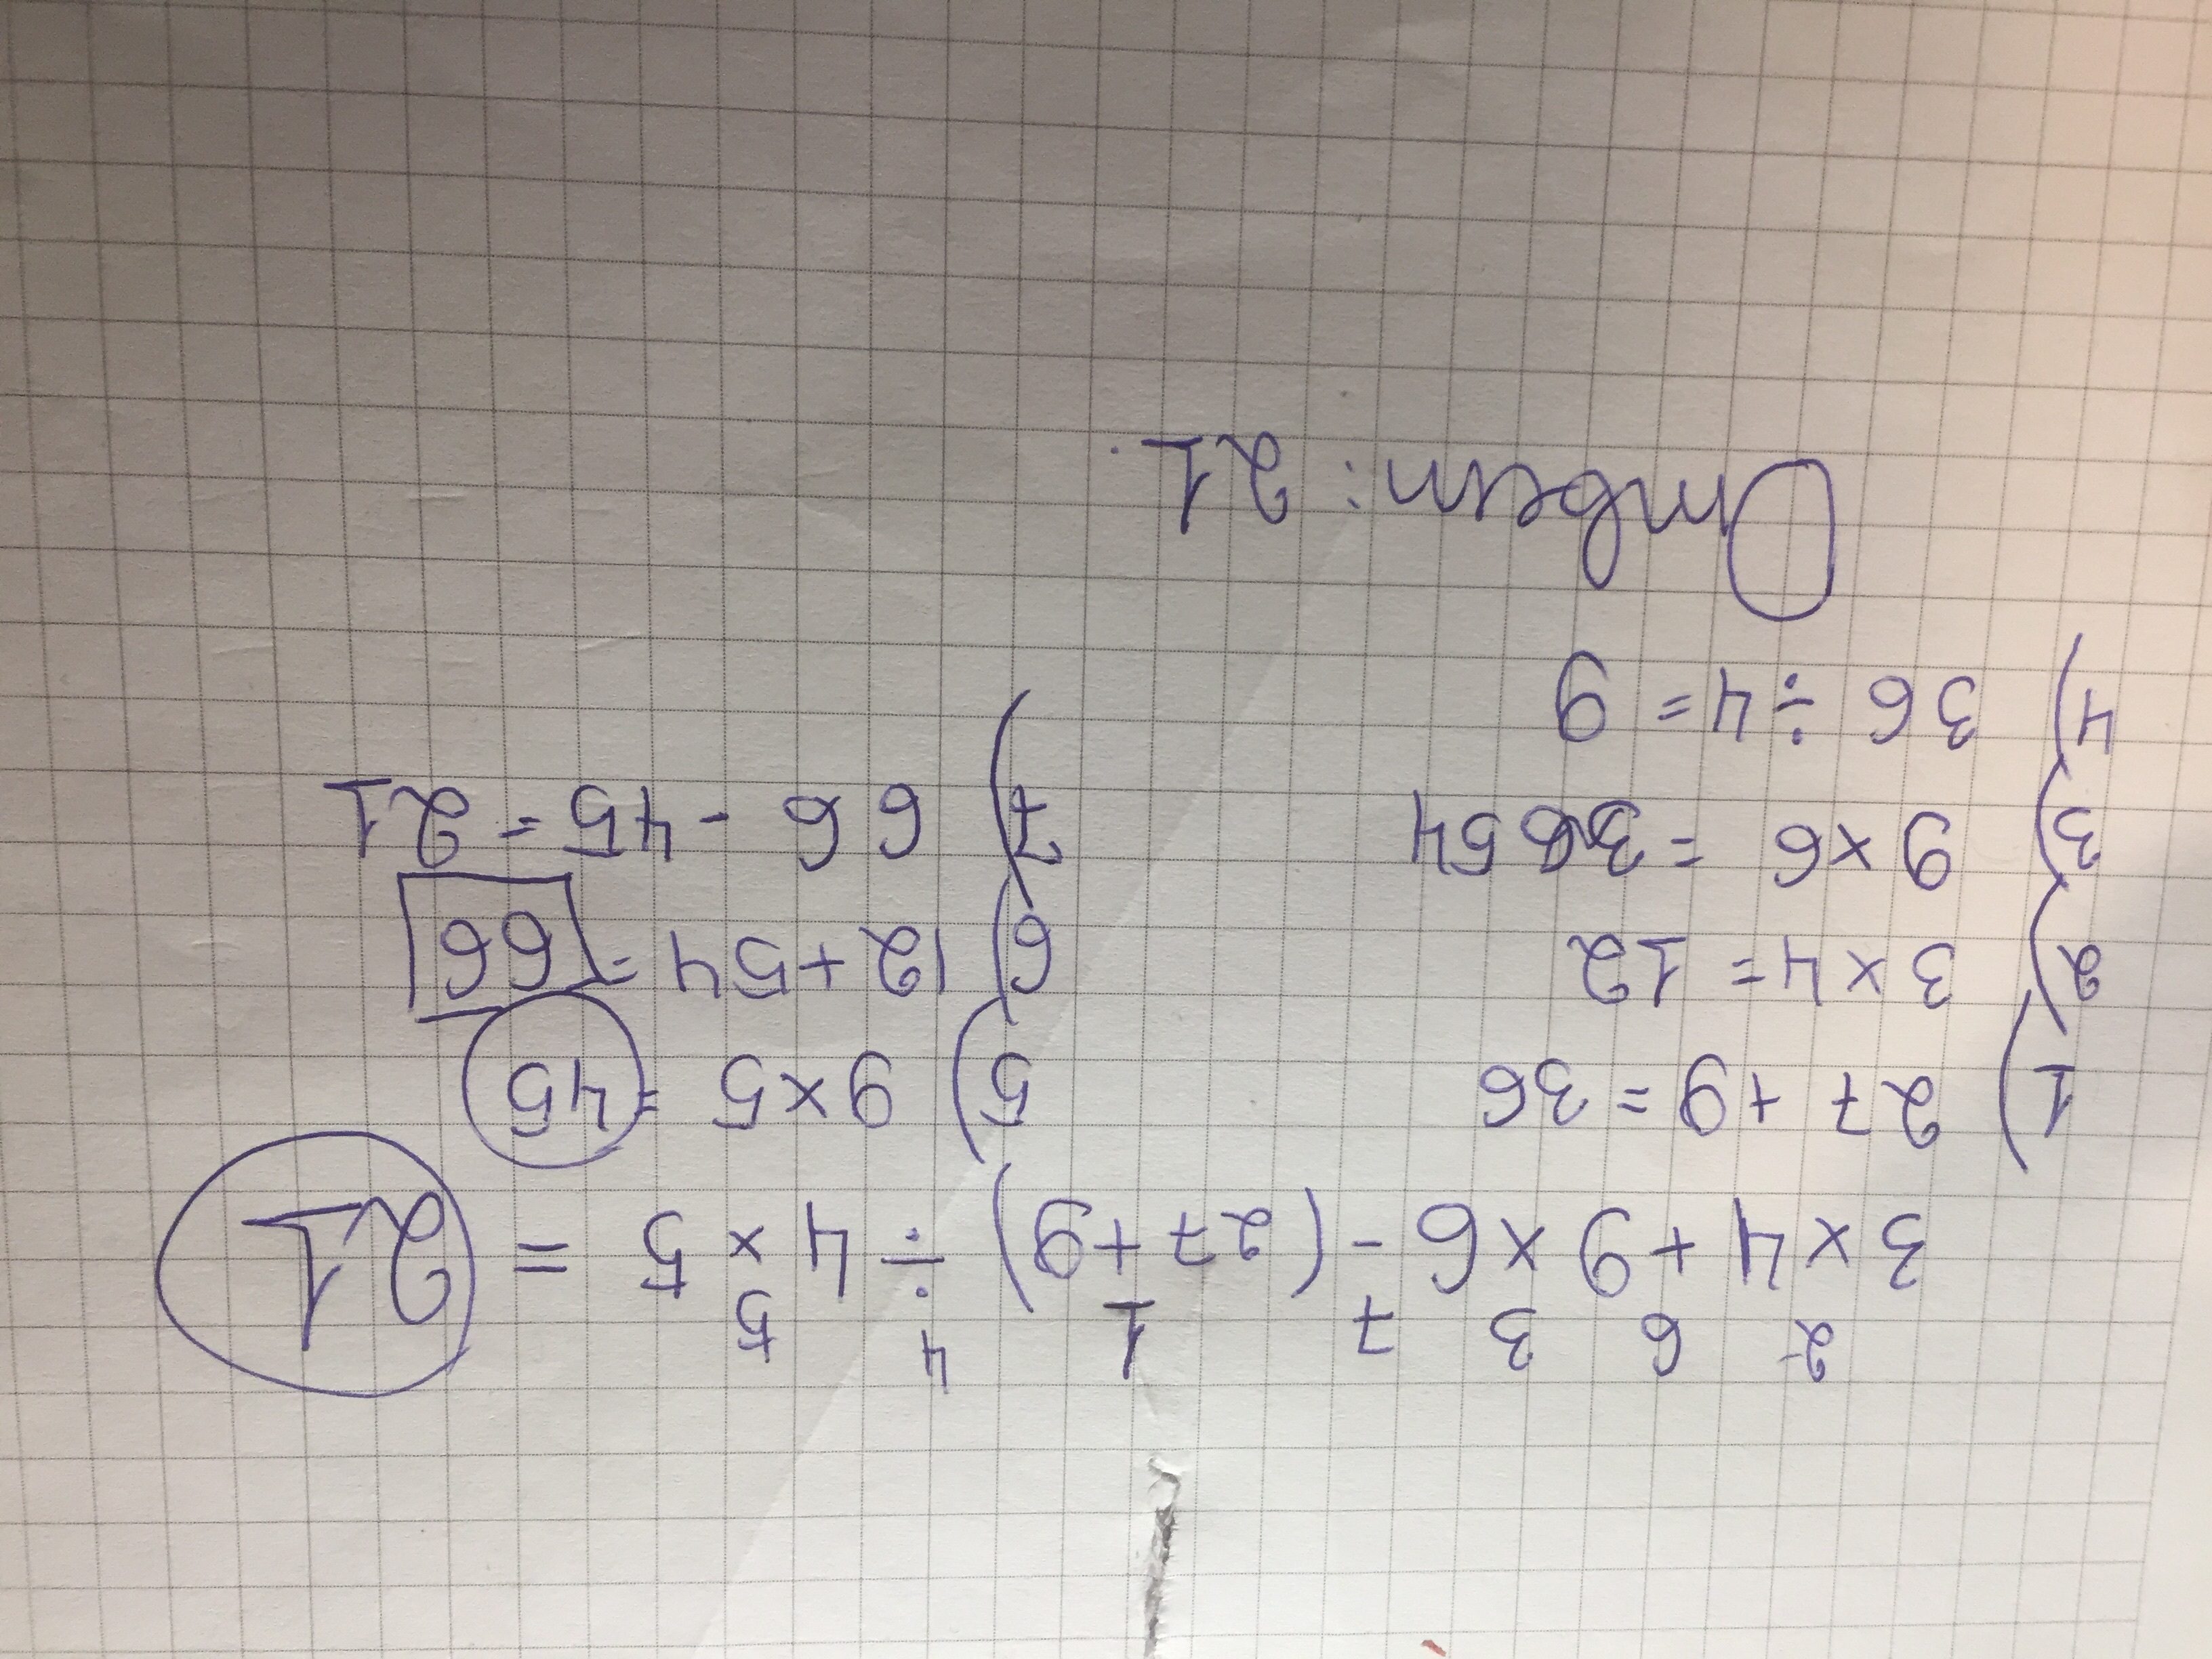 2 6 3 7 1 4 5
3 × 4 + 9 × 6 - (27 + 9) ÷ 4 × 5 = 21
1) 27 + 9 = 36
2) 3 × 4 = 12
3) 9 × 6 = 54
4) 36 ÷ 4 = 9
5) 9 × 5 = 45
6) 12 + 54 = 66
7) 66 - 45 = 21
Ответ: 21.